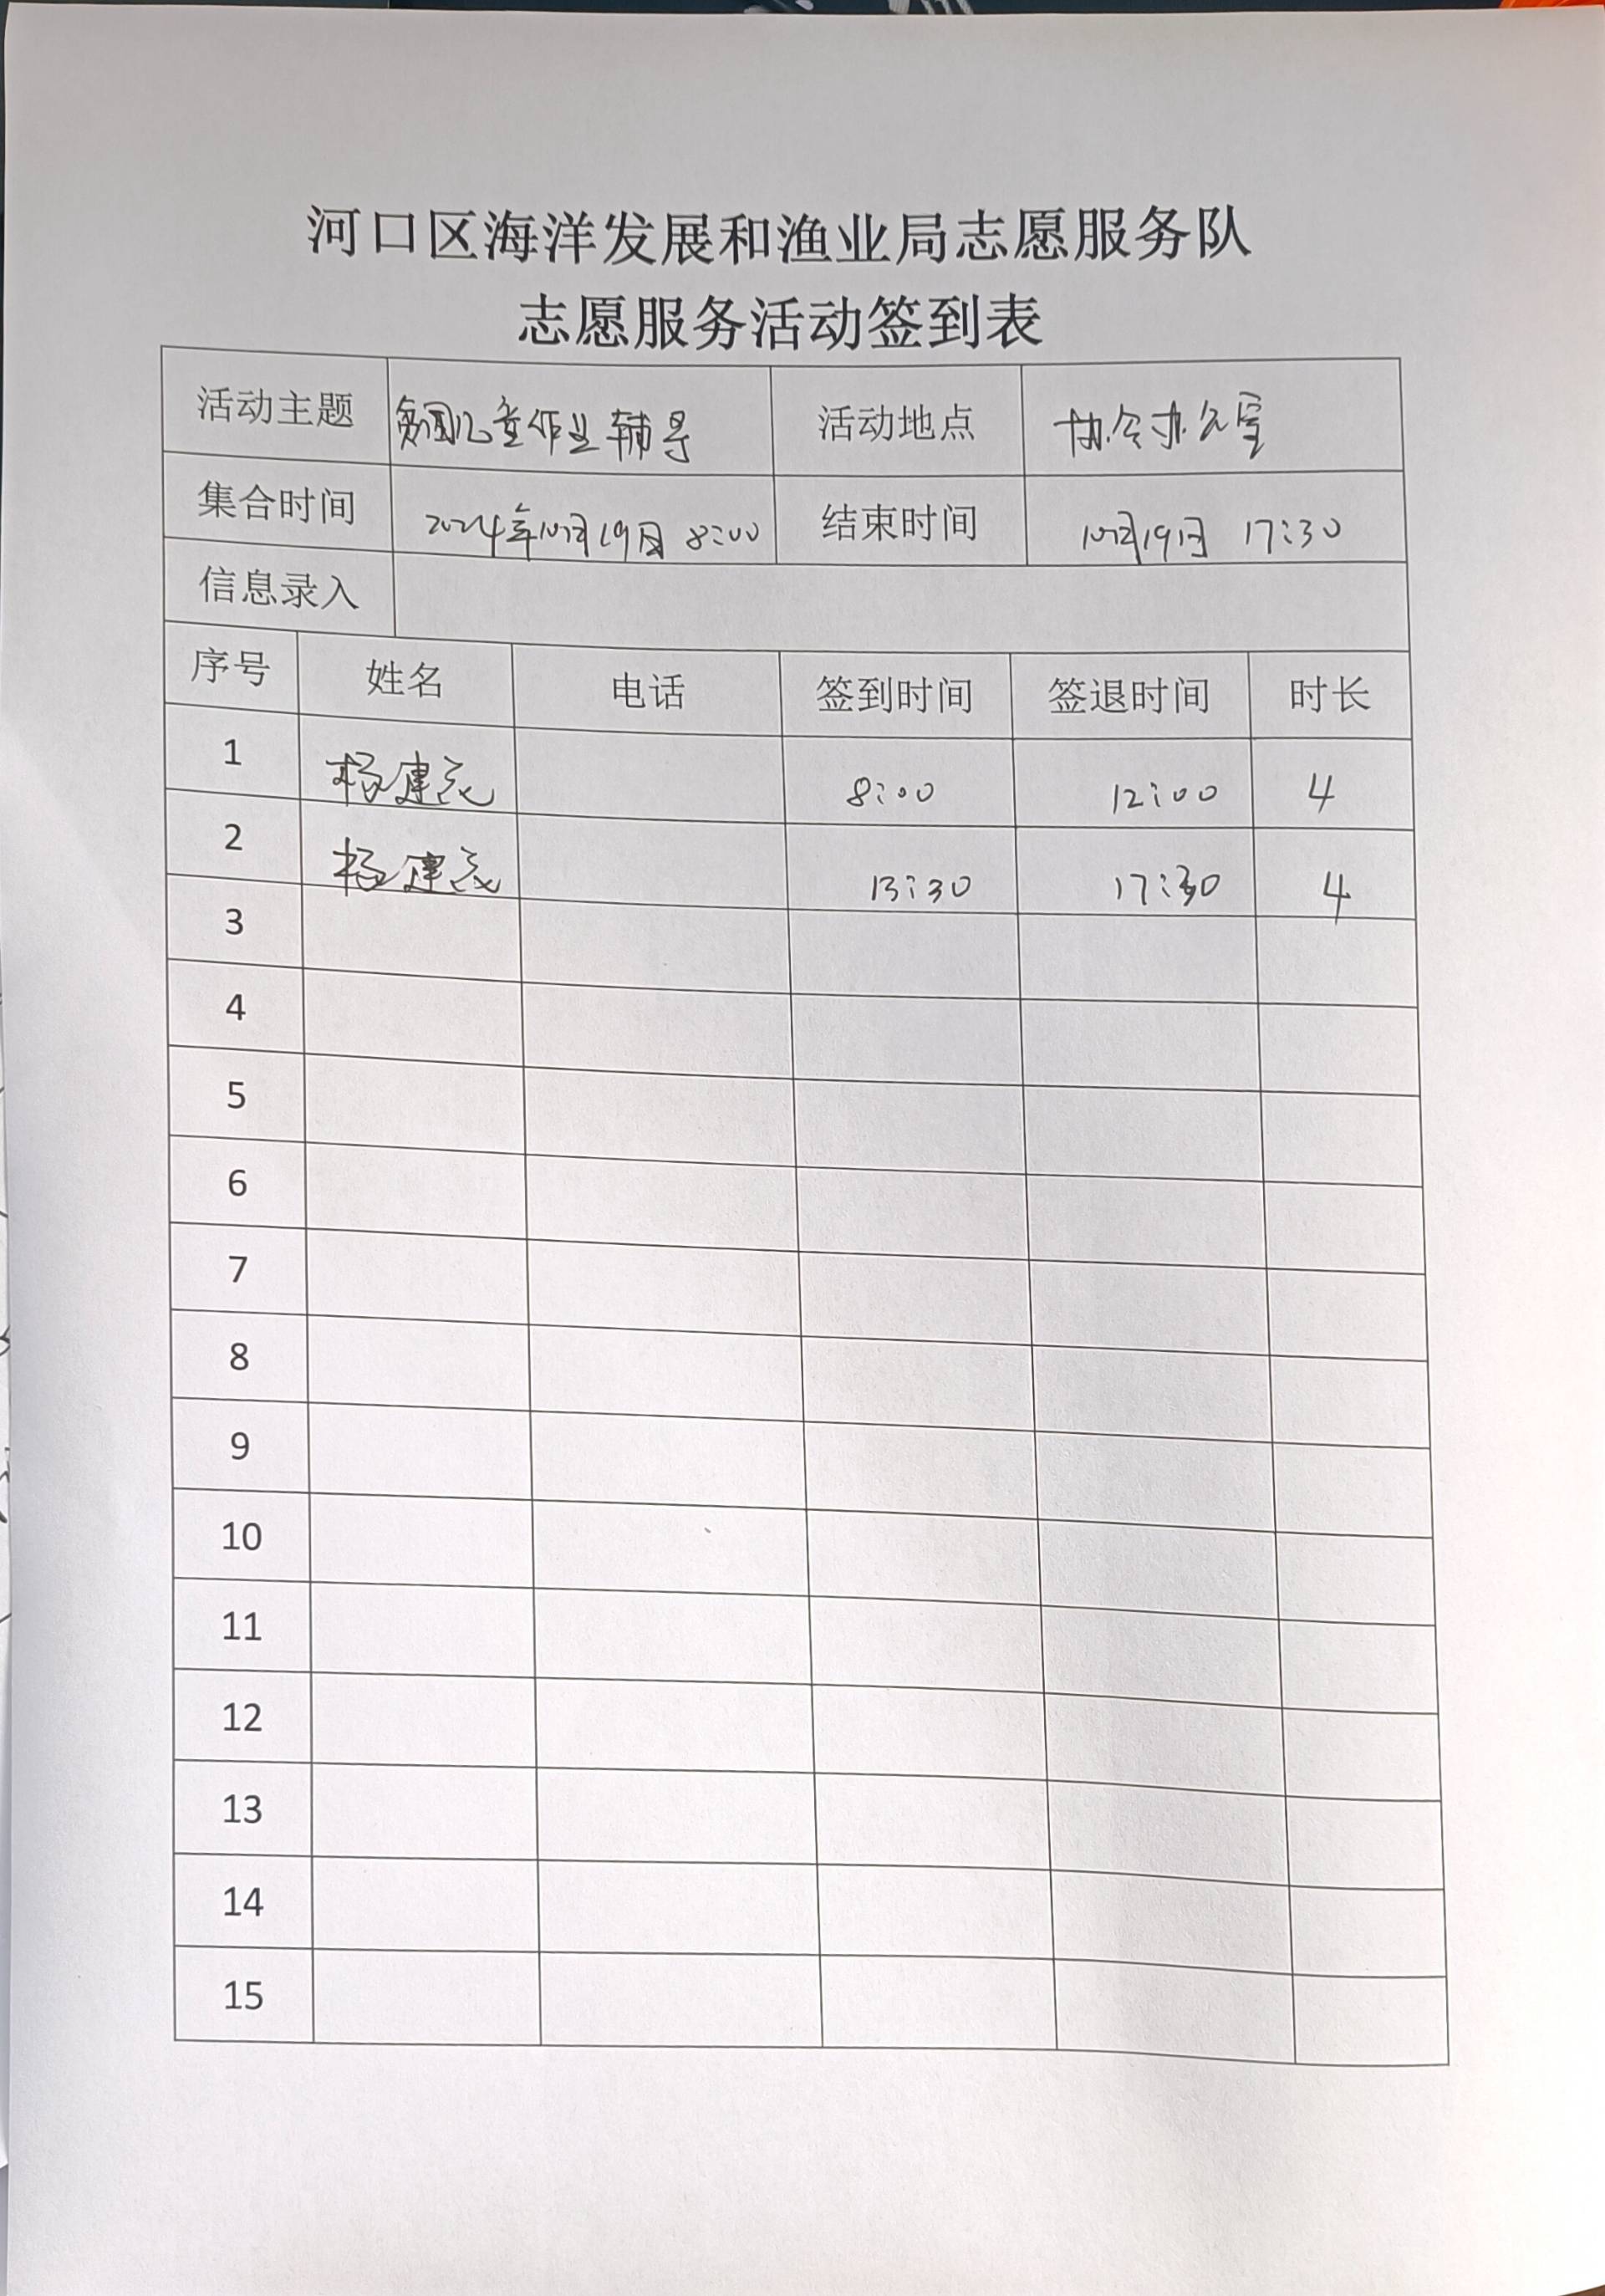 河口区海洋发展和渔业局志愿服务队
志愿服务活动签到表
活动主题 儿童作业辅导 活动地点 协会办公室
集合时间 2024年10月19日 8:00 结束时间 10月19日 17:30
信息录入
序号 姓名 电话 签到时间 签退时间 时长
1 杨建 8:00 12:00 4
2 杨建 13:30 17:30 4
3
4
5
6
7
8
9
10
11
12
13
14
15